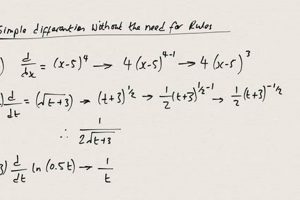 Simple differentiation Without the need for Rules
) d/dx = (x-5)⁴ → 4(x-5)⁴⁻¹ → 4(x-5)³
) d/dt = (√t+3) → (t+3)^½ → ½(t+3)^½-1 → ½(t+3)^-½
∴ 1/2√t+3
3) d/dt ln (0.5t) → 1/t